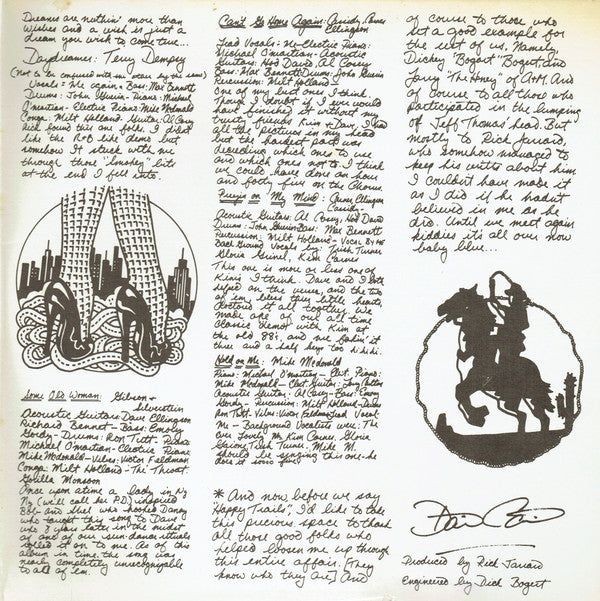 Dreams are nuthin' more than
wishes and a wish is just a
dream you wish to come true...
Daydreamer: Terry Dempsy
(Not to be confused with one wrote by the same)
Vocals: Me again. Bass: Max Bennett
Drums: John Guerin. Piano: Michael
O'martian - Electric Piano: Mike Mcdonald
Conga: Milt Holland. Guitar: Al Casey
Rick found this one folks. I didn't
like the R&B like demo but
somehow it stuck with me
through those "Smokey" bits
at the end I fell into.
Some Old Woman: Gibson &
Silverstein
Acoustic Guitars Dave Ellingson
Richard Bennet - Bass: Emory
Gordy - Drums: Ron Tutt. Piano
Michael O'martian - Electric Piano
Mike McDonald - Vibes: Victor Feldman
Conga: Milt Holland - The Throat
Gorilla Monsoon
Once upon a time a lady in N.Y.
Ny (we'll call her P.D.) inspired
Bob and Shel who hooked Danny
who taught this song to Dave
who 2 years later in the midst
of one of our sun-dance rituals
rolled it on to me. As of this
album in time the song was
nearly completely unrecognizable
to all of 'em.
Can't Go Home Again: Cassidy, Carnes
Ellingson
Lead Vocals: Me - Electric Piano:
Michael O'martian - Acoustic
Guitars: Hod David, Al Casey
Bass: Max Bennett Drums: John Guerin
Percussion: Milt Holland -
One of my best ones I think.
Though I doubt if I ever would
have finished it without my
trusty friends Kim & Dave. I had
all the pictures in my head
but the hardest part was
deciding which ones to use
and which ones not to. I think
we could have done an hour
and forty five on the Chorus.
Preyin on My Mind: Carnes, Ellingson
Cassidy -
Acoustic Guitars: Al Casey, Hod David
Drums: John Guerin Bass: Max Bennett
Percussion: Milt Holland - Vocal By Me
Back Ground Vocals by: Trish Turner
Gloria Grinel, Kim Carnes
This one is more or less one of
Kim's I think. Dave and I both
helped on the verses, and the two
of em, bless they little hearts,
doctored it all together. We
made one of our all time
classic demos with Kim at
the old 88's, and me fakin' it
thee and a half keys too hi hi hi.
Hold on Me: Mike Mcdonald
Piano: Michael O'martian - Elect. Piano:
Mike Mcdonald - Elect Guitar: Larry Carlton
Acoustic Guitar: Al Casey - Bass: Emory
Gordy - Percussion: Milt Holland - Drums
Ron Tutt. Vibes: Victor Feldman Lead Vocal:
Me - Background Vocalists were: The
ever lovely Ms. Kim Carnes, Gloria
Grinel, Trish Turner. Mike M.
should be singing this one - he
does it soooo fine
* And now before we say
"Happy Trails", I'd like to take
this precious space to thank
all those good folks who
helped loosen me up through
this entire affair. [They
know who they are] And
of course to those who
set a good example for
the rest of us. Namely,
Dickey "Bogart" Bogert and
Larry "The Honey" of A&M. And
of course to all those who
participated in the lumping
of Jeff Thomas' head. But
mostly to Rick Jarrard,
who somehow managed to
keep his writes about him
I couldn't have made it
as I did if he hadn't
believed in me as he
did. Until we meet again
kiddies it's all over now
baby blue...
Produced by Rick Jarrard
Engineered by Dick Bogert